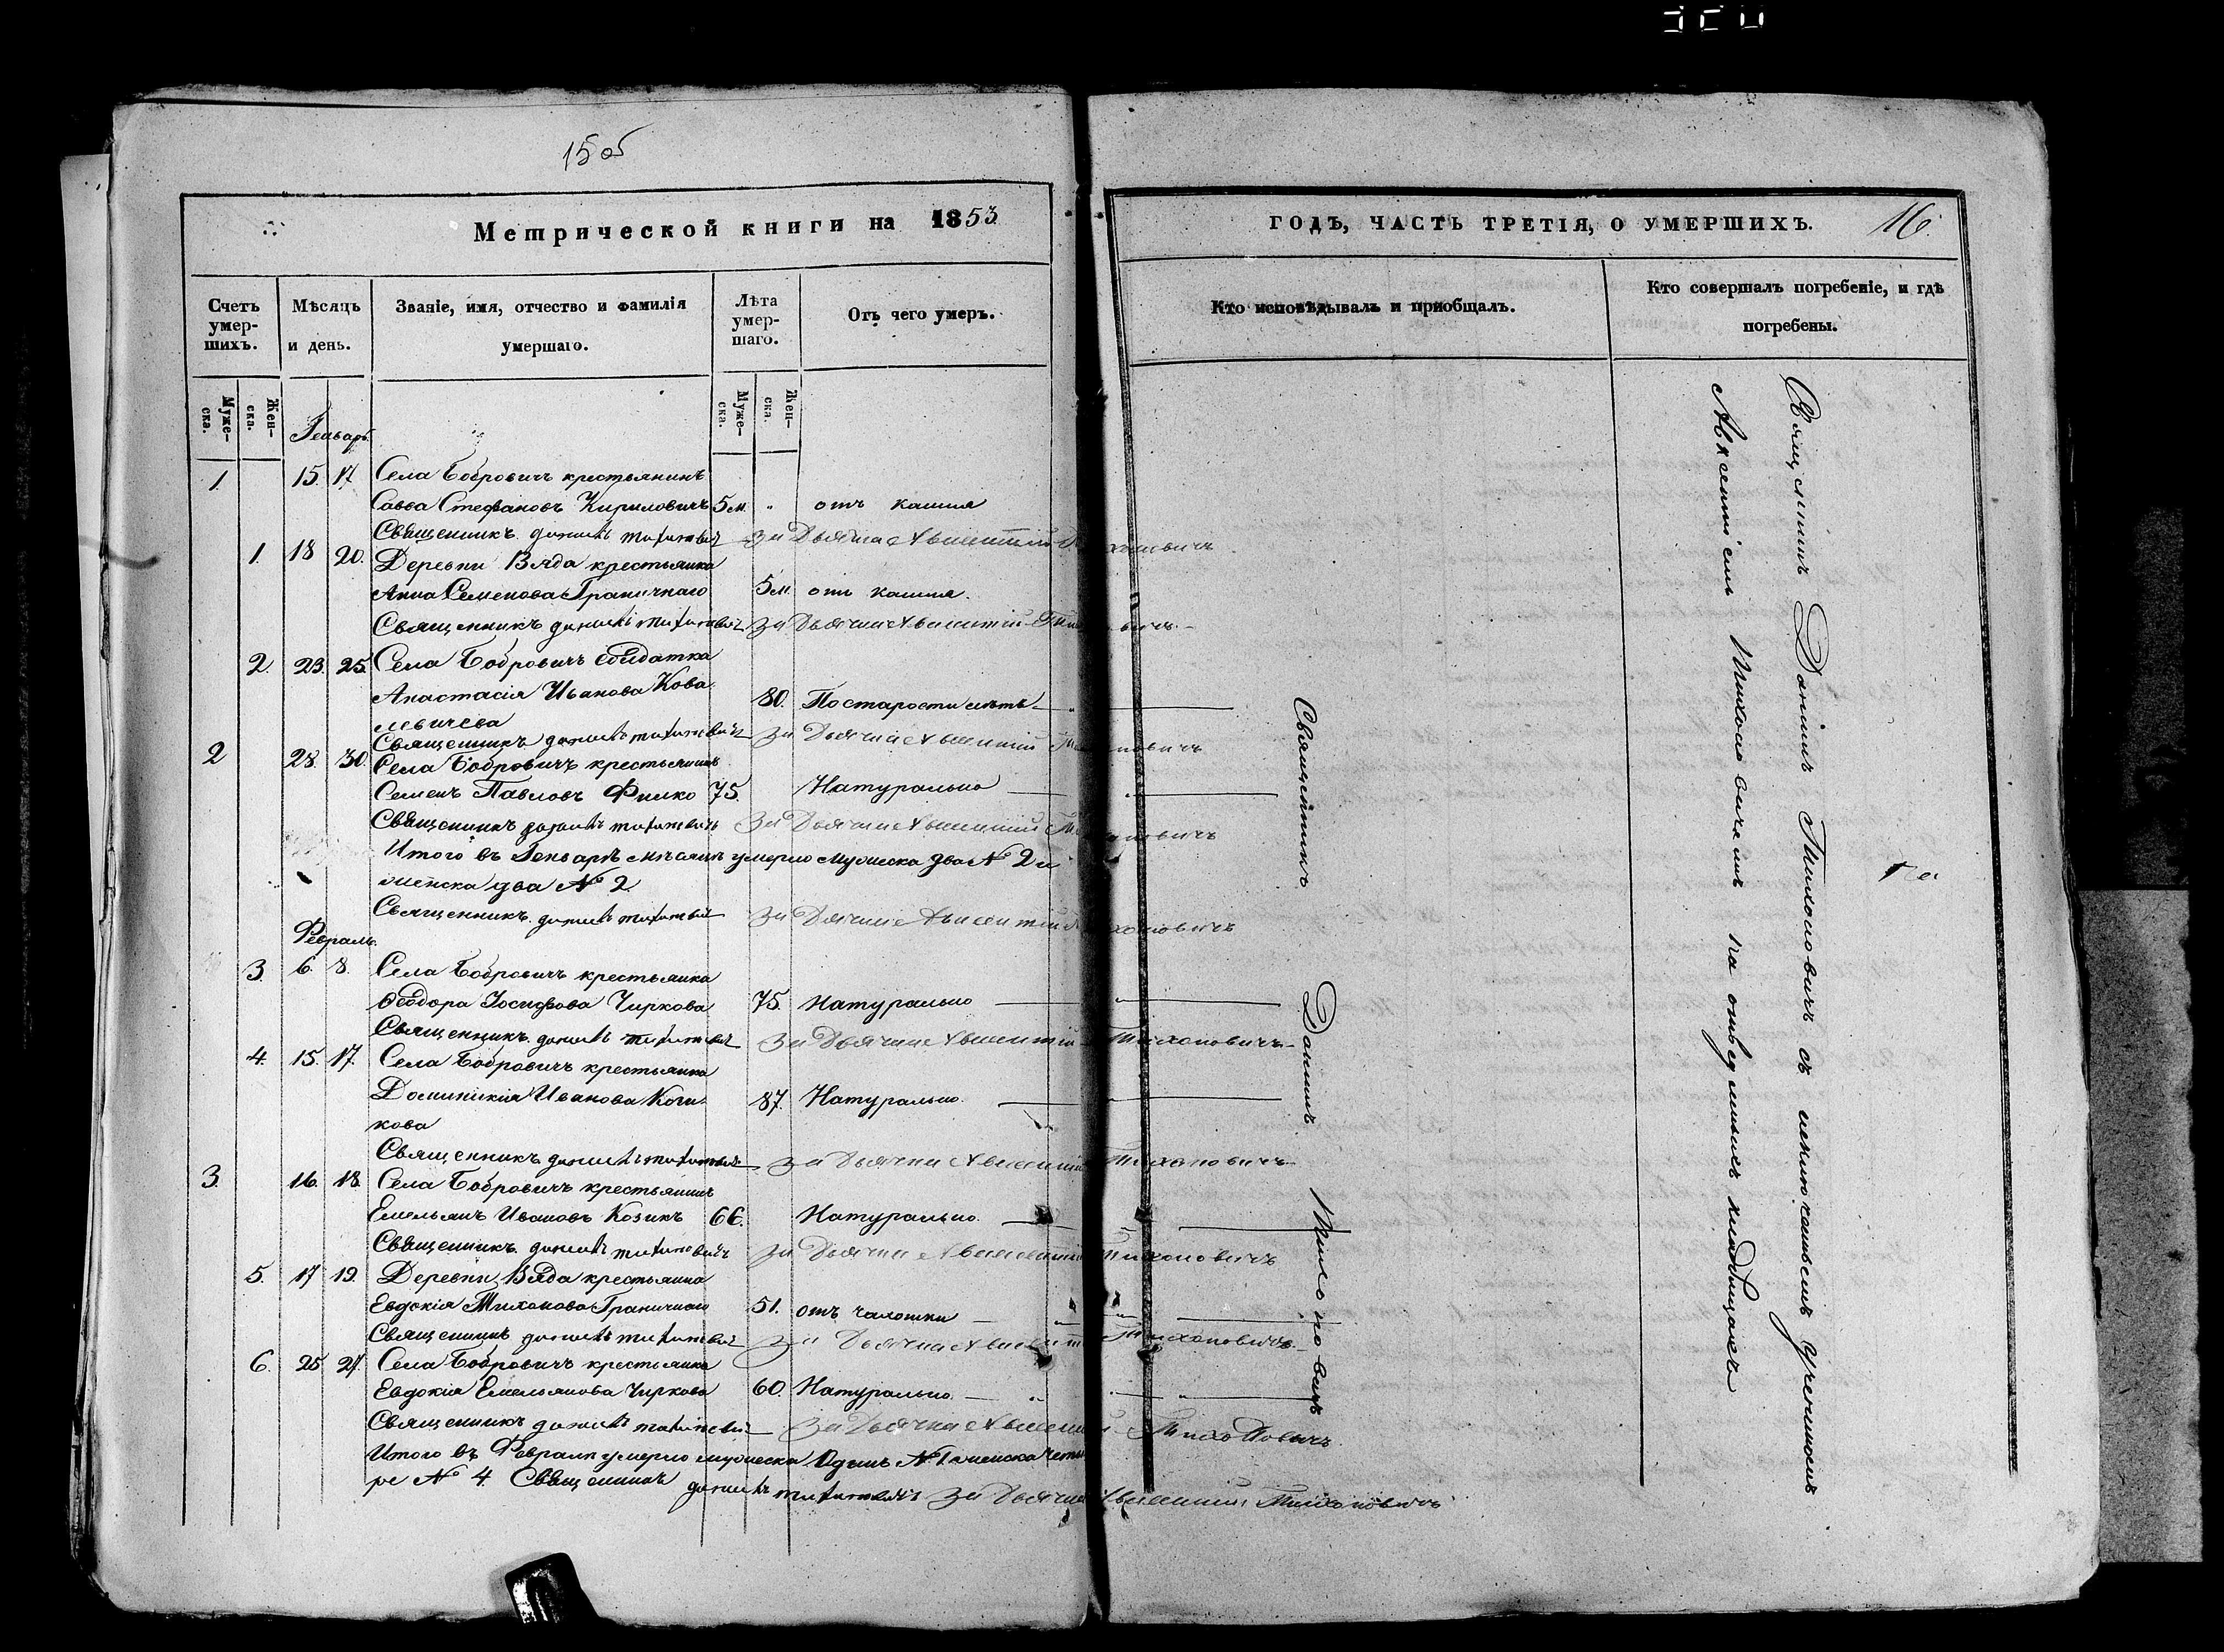 15 об
Метрической книги на 1853
Счетъ умер-шихъ.
Мѣсяцъ и день.
Званіе, имя, отчество и фамилія умершаго.
Лѣта умер-шаго.
Отъ чего умеръ.
Муже-ска.
Жен-ска.
Муже-ска.
Жен-ска.
Генварь
1. 15. 17. Села Бобровичъ крестьянинъ
Савва Стефановъ Кириловичъ 5 м. " отъ кашля
Священникъ Тихоновичъ За Дьячка Авксентій Тихоновичъ
1. 18 20. Деревни Вяда крестьянка
Анна Семенова Граничнаго 5 м. отъ кашля.
Священникъ Тихоновичъ За Дьячка Авксентій Тихоновичъ
2. 23. 25. Села Бобровичъ солдатка
Анастасія Иванова Кова- 80. По старости лѣтъ
левичева
Священникъ Тихоновичъ За Дьячка Авксентій Тихоновичъ
2 28. 30. Села Бобровичъ крестьянинъ
Семенъ Павловъ Филко 75. Натурально
Священникъ Тихоновичъ За Дьячка Авксентій Тихоновичъ
Итого въ Генварѣ мѣсяцѣ умерло мужеска два № 2 и
женска два № 2
Священникъ Тихоновичъ За Дьячка Авксентій Тихоновичъ
Февраль.
3. 6. 8. Села Бобровичъ крестьянка
Феодора Іосифова Чиркова 75. Натурально
Священникъ Тихоновичъ За Дьячка Авксентій Тихоновичъ
4. 15. 17. Села Бобровичъ крестьянка
Доминикія Иванова 87. Натурально.
кова
Священникъ Тихоновичъ За Дьячка Авксентій Тихоновичъ
3. 16. 18. Села Бобровичъ крестьянинъ
Емельянъ Ивановъ Козикъ 66. Натурально.
Священникъ Тихоновичъ За Дьячка Авксентій Тихоновичъ
5. 17 19. Деревни Вяда крестьянка
Евдокія Тихонова Граничнаго 51. отъ чахотки
Священникъ Тихоновичъ За Дьячка Авксентій Тихоновичъ
6. 25 27. Села Бобровичъ крестьянка
Евдокія Емельянова Чиркова 60. Натурально.
Священникъ Тихоновичъ За Дьячка Авксентій Тихоновичъ
Итого въ Февралѣ умерло мужеска Одинъ № 1 женска четы
ре № 4. Священникъ Тихоновичъ За Дьячка Авксентій Тихоновичъ
ГОДЪ, ЧАСТЬ ТРЕТІЯ, О УМЕРШИХЪ. 16.
Кто исповѣдывалъ и пріобщалъ.
Кто совершалъ погребеніе, и гдѣ погребены.
Священникъ Даніилъ Тихоновичъ
Священникъ Даніилъ Тихоновичъ съ
Авксентіемъ Тихоновичемъ на отведенномъ кладбищѣ